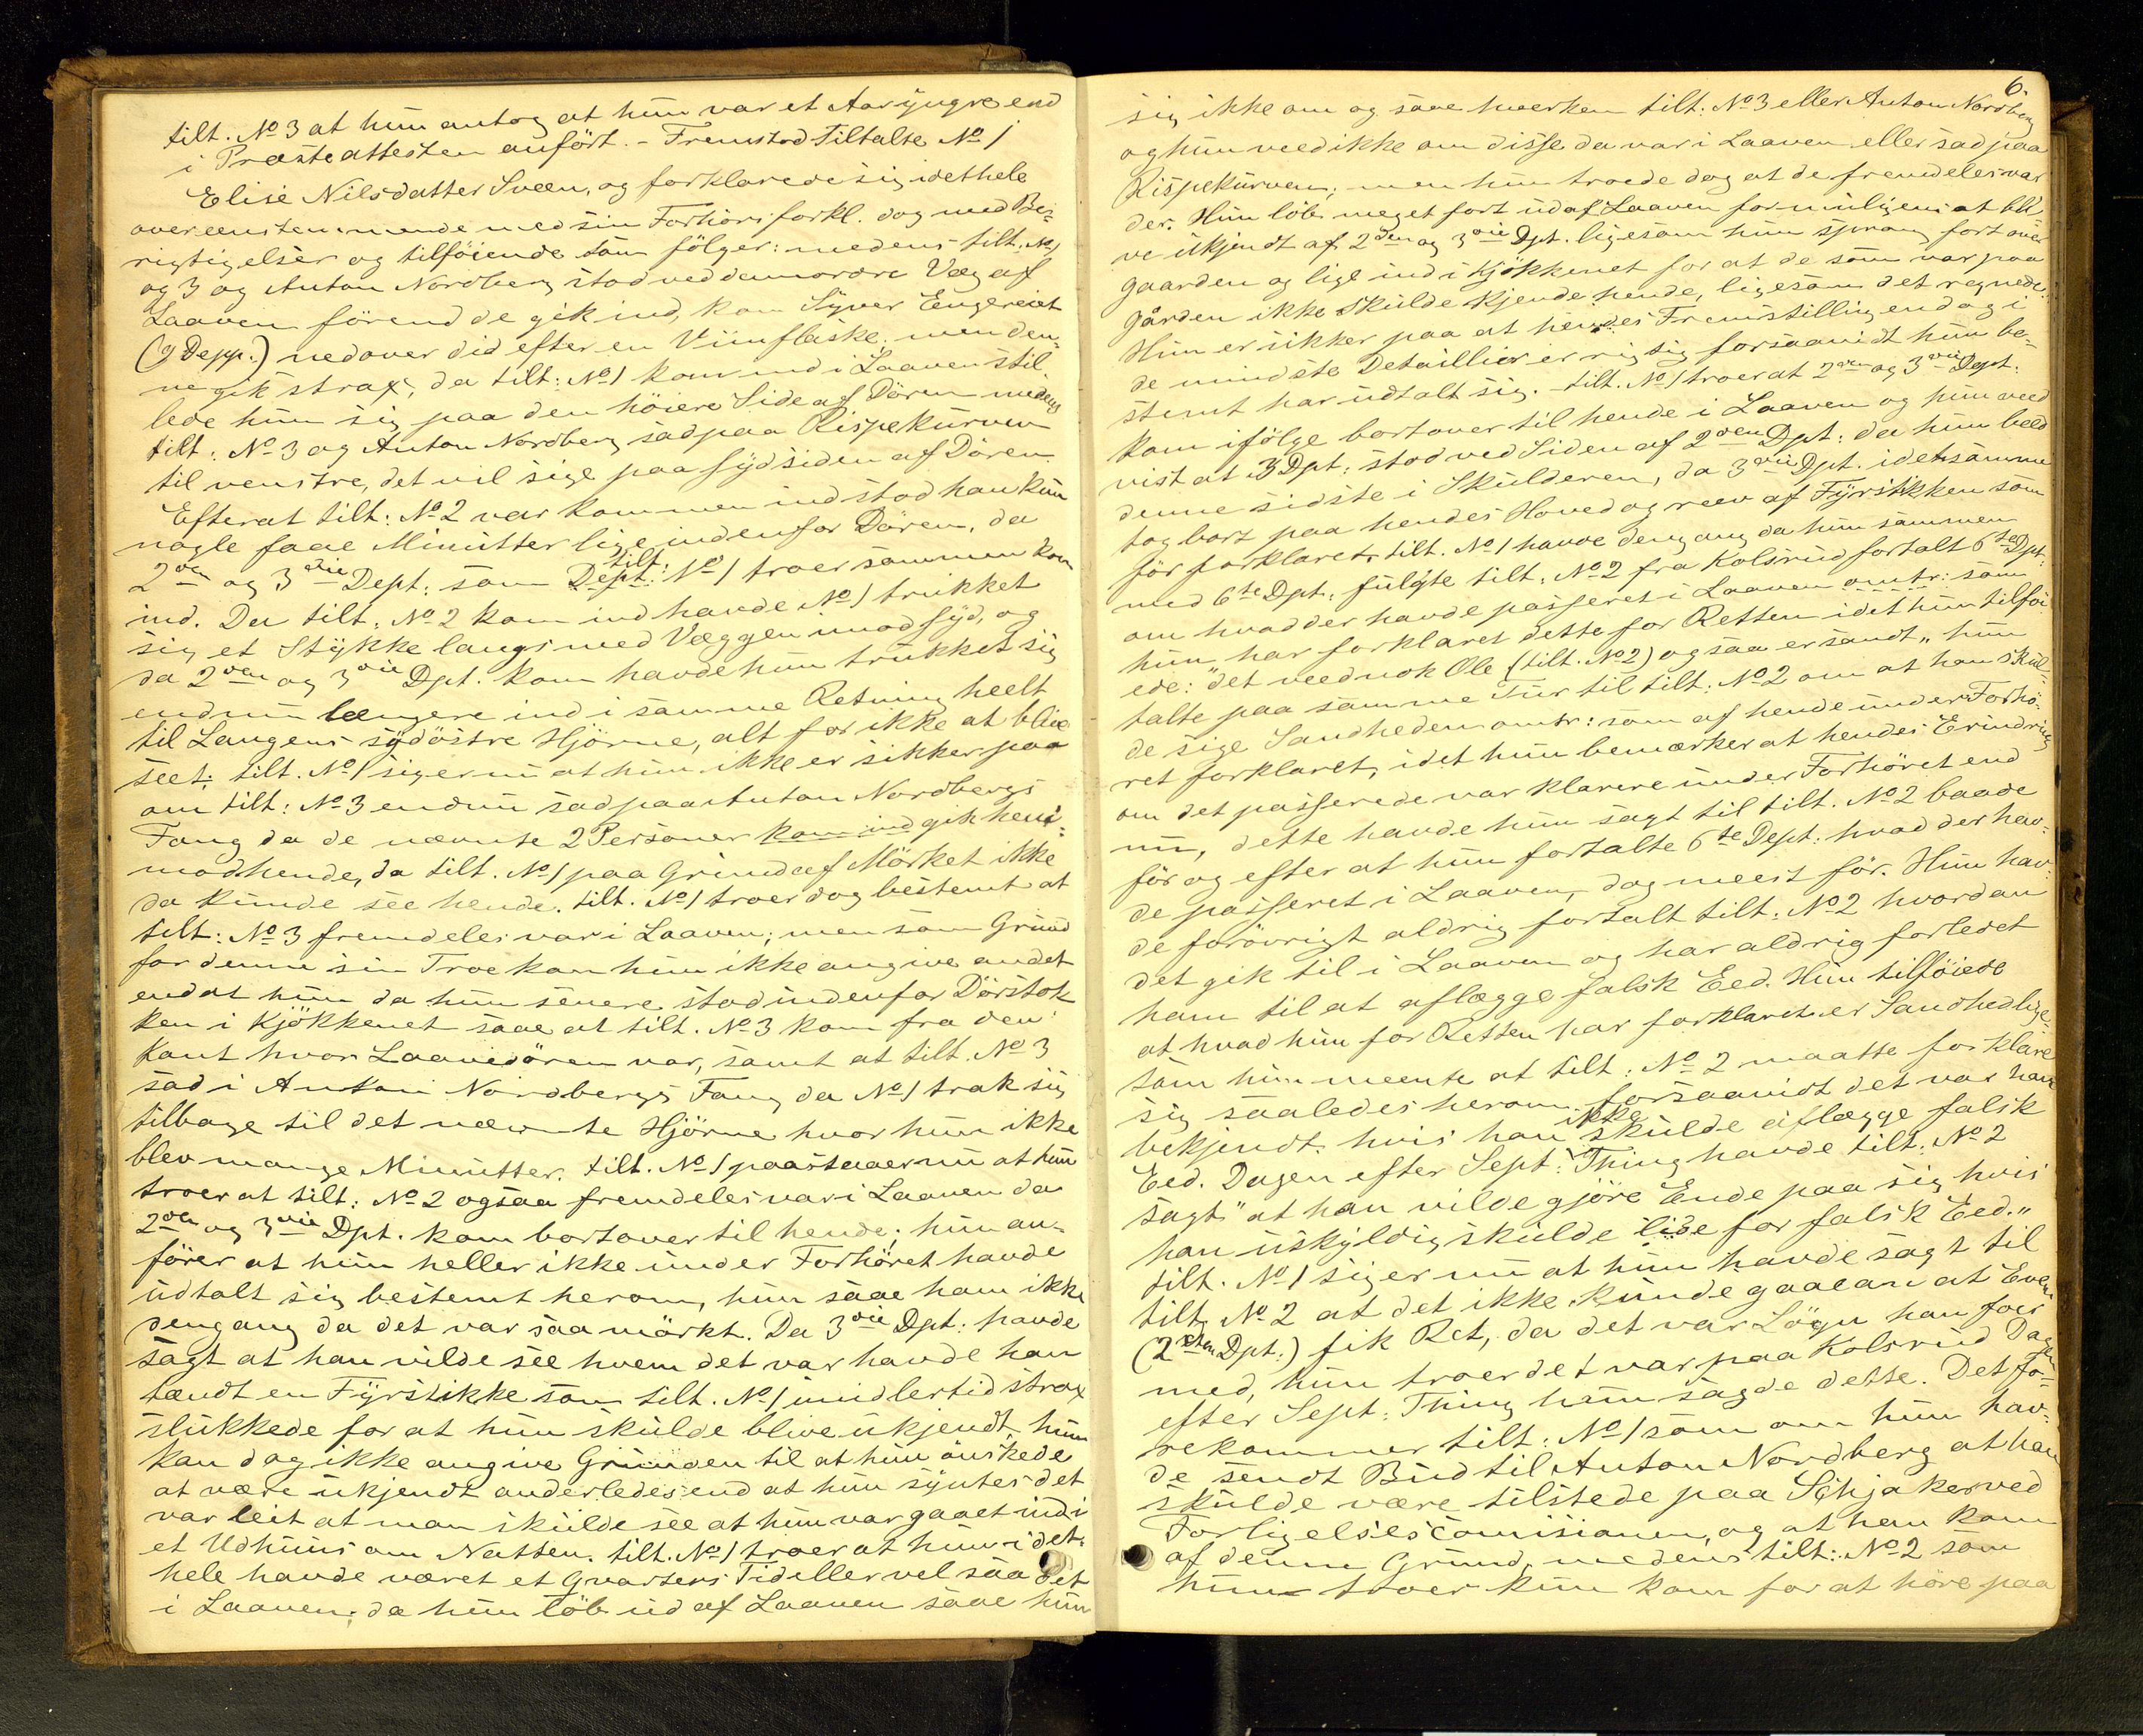 tilt. No 3 at hun antog at hun var et Aar yngre end
i Præsteattesten anført. - Fremstod Tiltalte No 1
Elise Nilsdatter Sveen, og forklarede sig idethele
overeensstemmende med sin Forhørsforkl. dog med Be-
rigtigelser og tilføiende som følger: medens tilt. No 1
og 3 og Anton Nordberg stod ved den nordre Væg af
Laaven førend de gik ind, kom Syver Engereiet
(9 Depp.) nedover did efter en Viinflaske, men den-
ne gik strax; da tilt: No 1 kom ind i Laaven stil-
lede hun sig paa den høiere Side af Døren medens
tilt: No 3 og Anton Nordberg sad paa Rispekurven
til venstre, det vil sige paa Sydsiden af Døren.
Efterat tilt: No 2 var kommen ind stod han kun
nogle faae Minutter lige indenfor Døren, da
2den og 3die Dept: som Dept: tilt: No 1 troer sammen kom
ind. Da tilt: No 2 kom ind havde No 1 trukket
sig et Stykke langs med Væggen imod Syd, og
da 2den og 3die Dpt. kom havde hun trukket sig
endnu længere ind i samme Retning heelt
til Langens sydøstre Hjørne, alt for ikke at blive
seet; tilt. No 1 siger nu at hun ikke er sikker paa
om tilt: No 3 endnu sad paa Anton Nordbergs
Fang da de nævnte 2 Personer kom ind gik hen i-
mod hende, da tilt. No 1 paa Grund af Mørket ikke
da kunde see hende. tilt. No 1 troer dog bestemt at
tilt: No 3 fremdeles var i Laaven; men som Grund
for denne sin Troe kan hun ikke angive andet
end at hun da hun senere stod indenfor Dørstok-
ken i Kjøkkenet saae at tilt. No 3 kom fra den
Kant hvor Laavedøren var, samt at tilt. No 3
sad i Anton Nordbergs Fang da No 1 trak sig
tilbage til det nævnte Hjørne hvor hun ikke
blev mange Minutter. tilt. No 1 paastaaer nu at hun
troer at tilt: No 2 ogsaa fremdeles var i Laaven da
2den og 3die Dpt. kom bortover til hende; hun an-
fører at hun heller ikke under Forhøret havde
udtalt sig bestemt herom, hun saae ham ikke
dengang da det var saa mørkt. Da 3die Dpt: havde
sagt at han vilde see hvem det var havde han
tændt en Fyrstikke som tilt. No 1 imidlertid strax
slukkede for at hun skulde blive ukjendt, hun
kan dog ikke angive Grunden til at hun ønskede
at være ukjendt anderledes end at hun syntes det
var leit at man skulde see at hun var gaaet ind i
et Udhuus om Natten. tilt. No 1 troer at hun i det-
hele havde været et Qvarters Tid eller vel saa det
i Laaven; da hun løb ud af Laaven saae hun
6
sig ikke om og saae hverken tilt: No 3 eller Anton Nordberg
og hun veed ikke om disse da var i Laaven eller sad paa
Rispekurven; men hun troede dog at de fremdeles var
der. Hun løb meget fort ud af Laaven for muligens at bli-
ve ukjendt af 2den og 3die Dpt. ligesom hun sprang fort over
gaarden og lige ind i Kjøkkenet for at de som var paa
gården ikke skulde kjende hende, ligesom det regnede.
Hun er sikker paa at hendes Fremstilling endog i
de mindste Detaillier er rigtig forsaavidt hun be-
stemt har udtalt sig. - tilt. No 1 troer at 2den og 3die Dept.
kom ifølge bortover til hende i Laaven og hun veed
vist at 3 Dpt: stod ved Siden af 2den Dpt: da hun beed
denne sidste i Skulderen, da 3die Dpt. idetsamme
tog bort paa hendes Hoved og reev af Fyrstikken som
før forklaret. tilt. No 1 havde dengang da hun sammen
med 6te Dpt. fulgte tilt: No 2 fra Kolsrud fortalt 6te Dpt:
om hvad der havde passeret i Laaven omtr: som
hun har forklaret dette for Retten idet hun tilføi-
ede: "det veed nok Ole (tilt. No 2) ogsaa er sandt" hun
talte paa samme Tur til tilt: No 2 om at han skul-
de sige Sandheden omtr: som af hende under Forhø-
ret forklaret, idet hun bemærker at hendes Erindring
om det passerede var klarere under Forhøret end
nu, dette havde hun sagt til tilt. No 2 baade
før og efter at hun fortalte 6te Dept: hvad der hav-
de passeret i Laaven, dog meest før. Hun hav-
de forøvrigt aldrig fortalt tilt: No 2 hvordan
det gik til i Laaven og har aldrig forledet
ham til at aflægge falsk Eed. Hun tilføiede
at hvad hun for Retten har forklaret er Sandhed lige-
som hun meente at tilt: No 2 maatte forklare
sig saaledes herom forsaavidt det var ham
bekjendt. hvis han ikke skulde aflægge falsk
Eed. Dagen efter Sept: Thing havde tilt: No 2
sagt "at han vilde gjøre Ende paa sig hvis
han uskyldig skulde lide for falsk Eed."
tilt. No 1 siger nu at hun havde sagt til
tilt. No 2 at det ikke kunde gaae an at Even
(2den Dpt.) fik Ret, da det var Løgn han foer
med, hun troer det var paa Kolsrud Dagen
efter Sept: Thing ham sagde dette. Det fo-
rekommer tilt: No 1 som om hun hav-
de sendt Bud til Anton Nordberg at han
skulde være tilstede paa Schjaker ved
Forligelsescomisionen, og at han kom
af denne Grund, medens tilt: No 2 som
hun troer kun kom for at høre paa